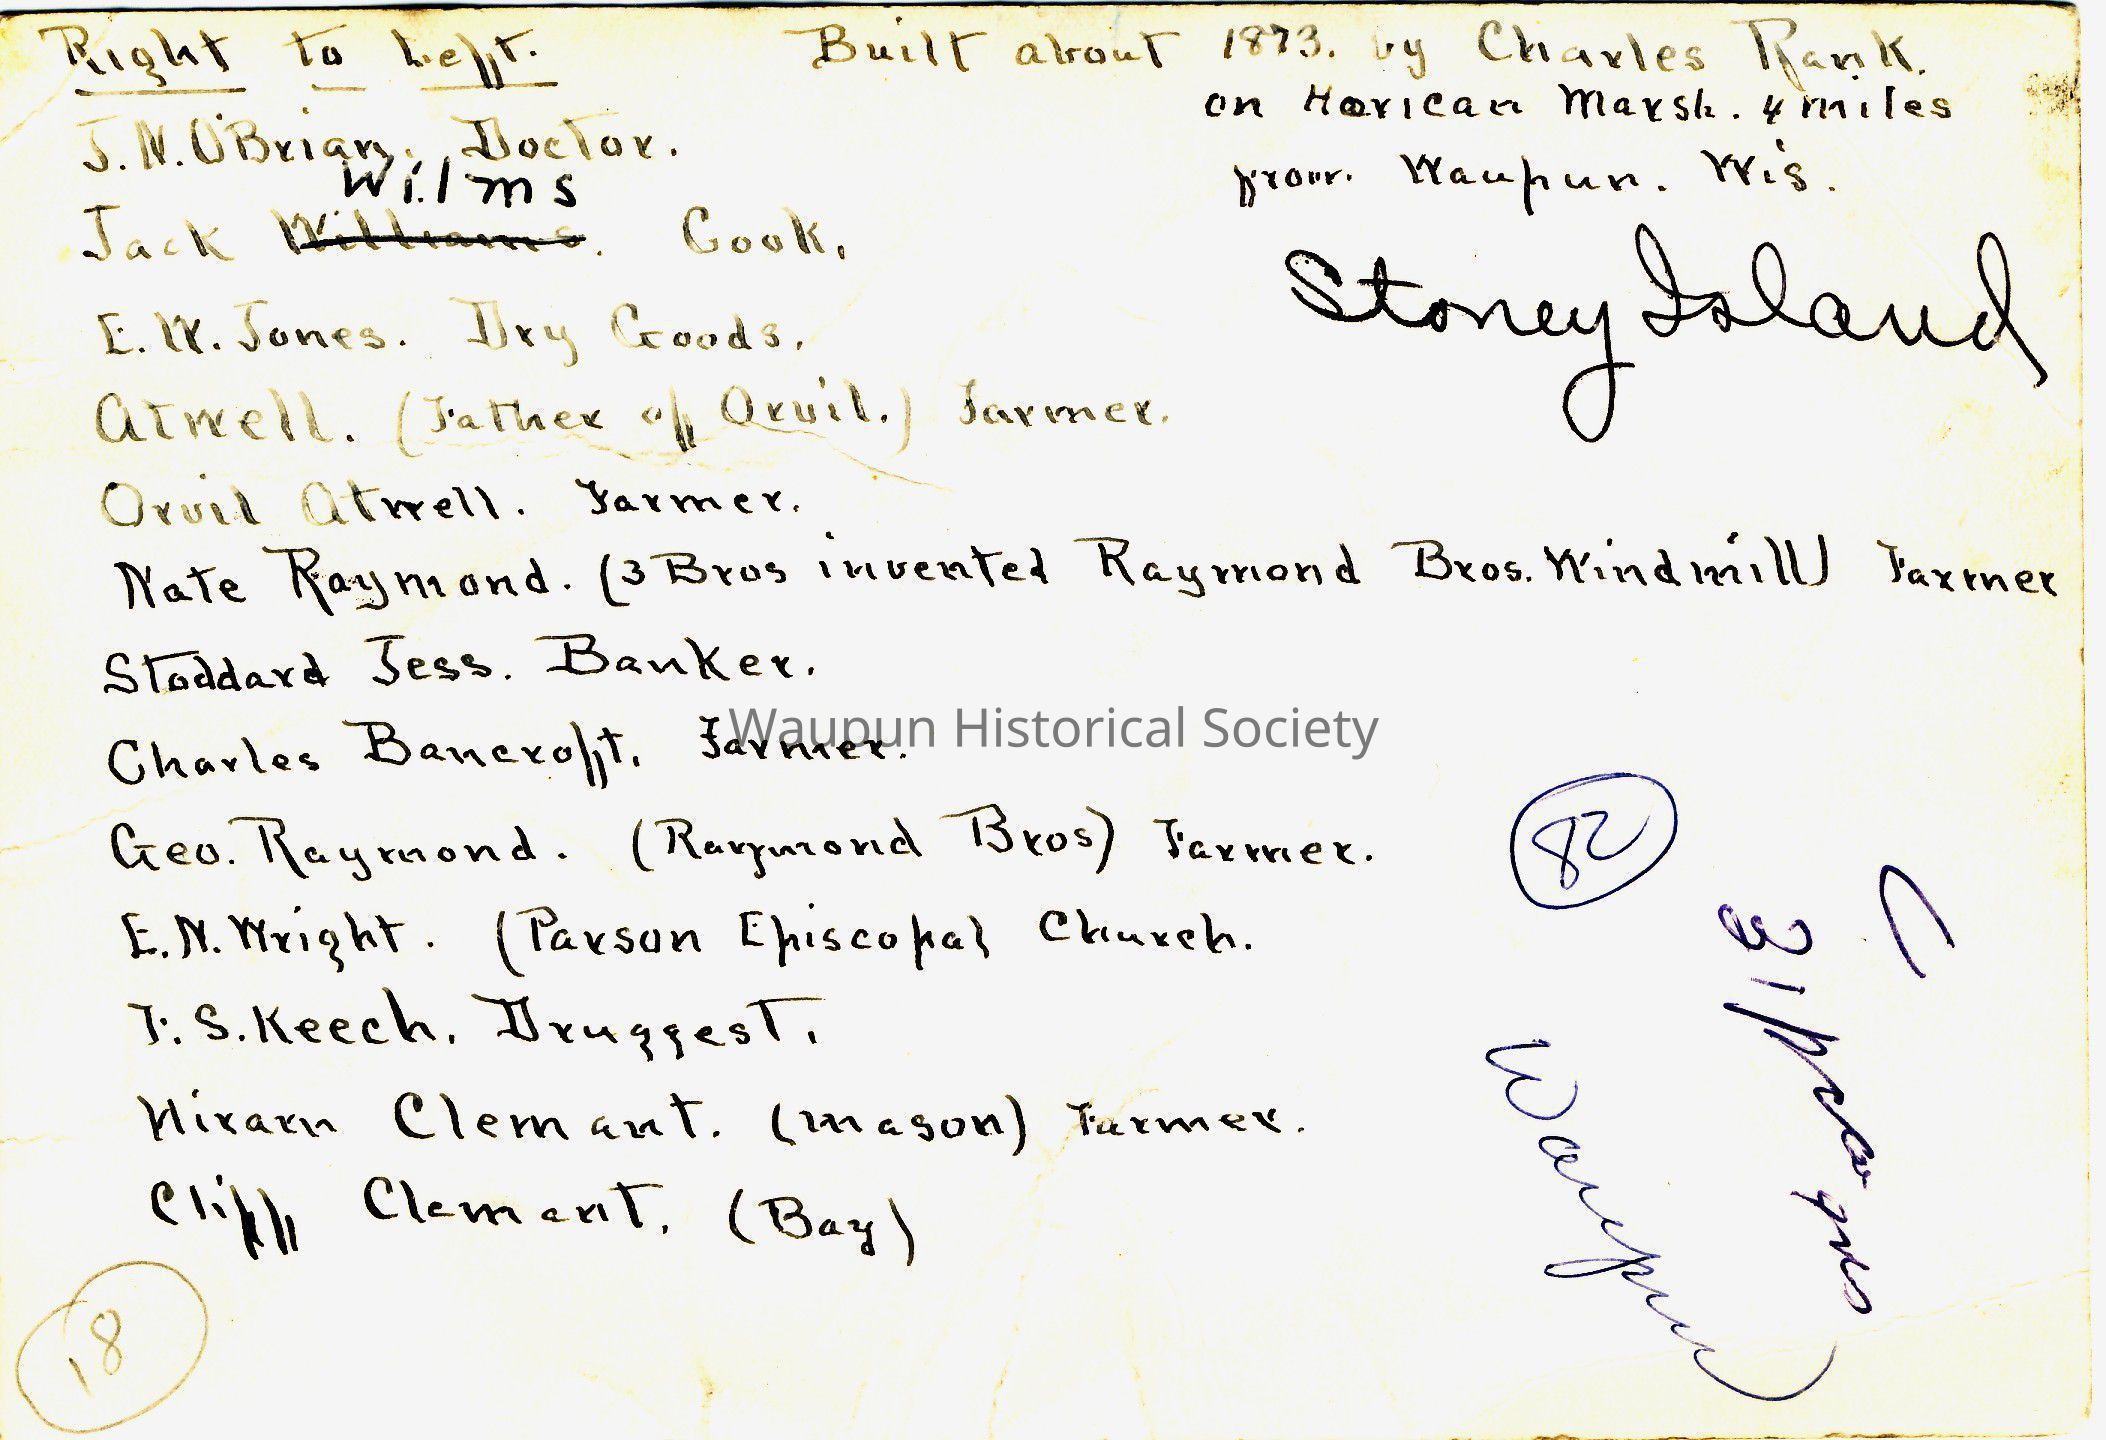 Right to Left.
Built about 1873. by Charles Rank.
on Horican Marsh. 4 miles
from Waupun. Wis.
Stoney Island
J.N. O'Brian. Doctor.
Wilms
Jack Williams. Cook.
E.W. Jones. Dry Goods.
Atwell. (Father of Orvil.) Farmer.
Orvil Atwell. Farmer.
Nate Raymond. (3 Bros invented Raymond Bros. Windmill) Farmer
Stoddard Jess. Banker.
Charles Bancroft. Farmer.
Waupun Historical Society
Geo. Raymond. (Raymond Bros) Farmer.
E.N. Wright. (Parson Episcopal Church.
F. S. Keech. Druggest.
Hiram Clemant. (Mason) Farmer.
Cliff Clemant. (Bay)
82
Waupun
18